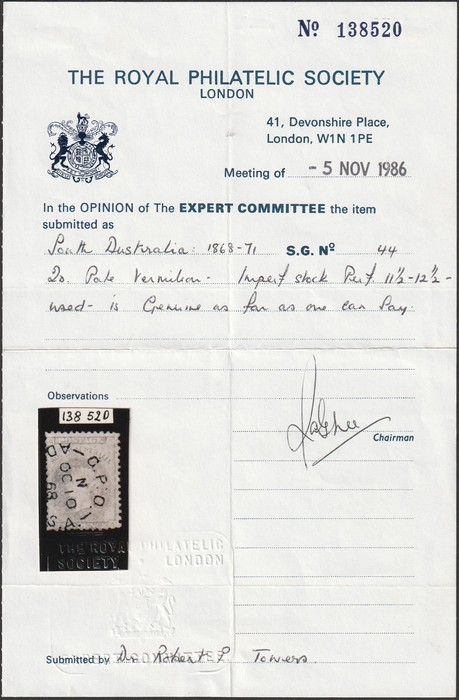 Nº 138520
THE ROYAL PHILATELIC SOCIETY
LONDON
41, Devonshire Place,
London, W1N 1PE
Meeting of - 5 NOV 1986
In the OPINION of The EXPERT COMMITTEE the item
submitted as
South Australia: 1868-71 S.G. Nº 44
2d. Pale Vermilion - Imperf stock Perf. 11½-12½-
used - is Genuine as far as one can say.
Observations
138 520
Chairman
G.P.O.
OC 10
68
THE ROYAL PHILATELIC
SOCIETY LONDON
Submitted by Dr. Robert F. Towers.